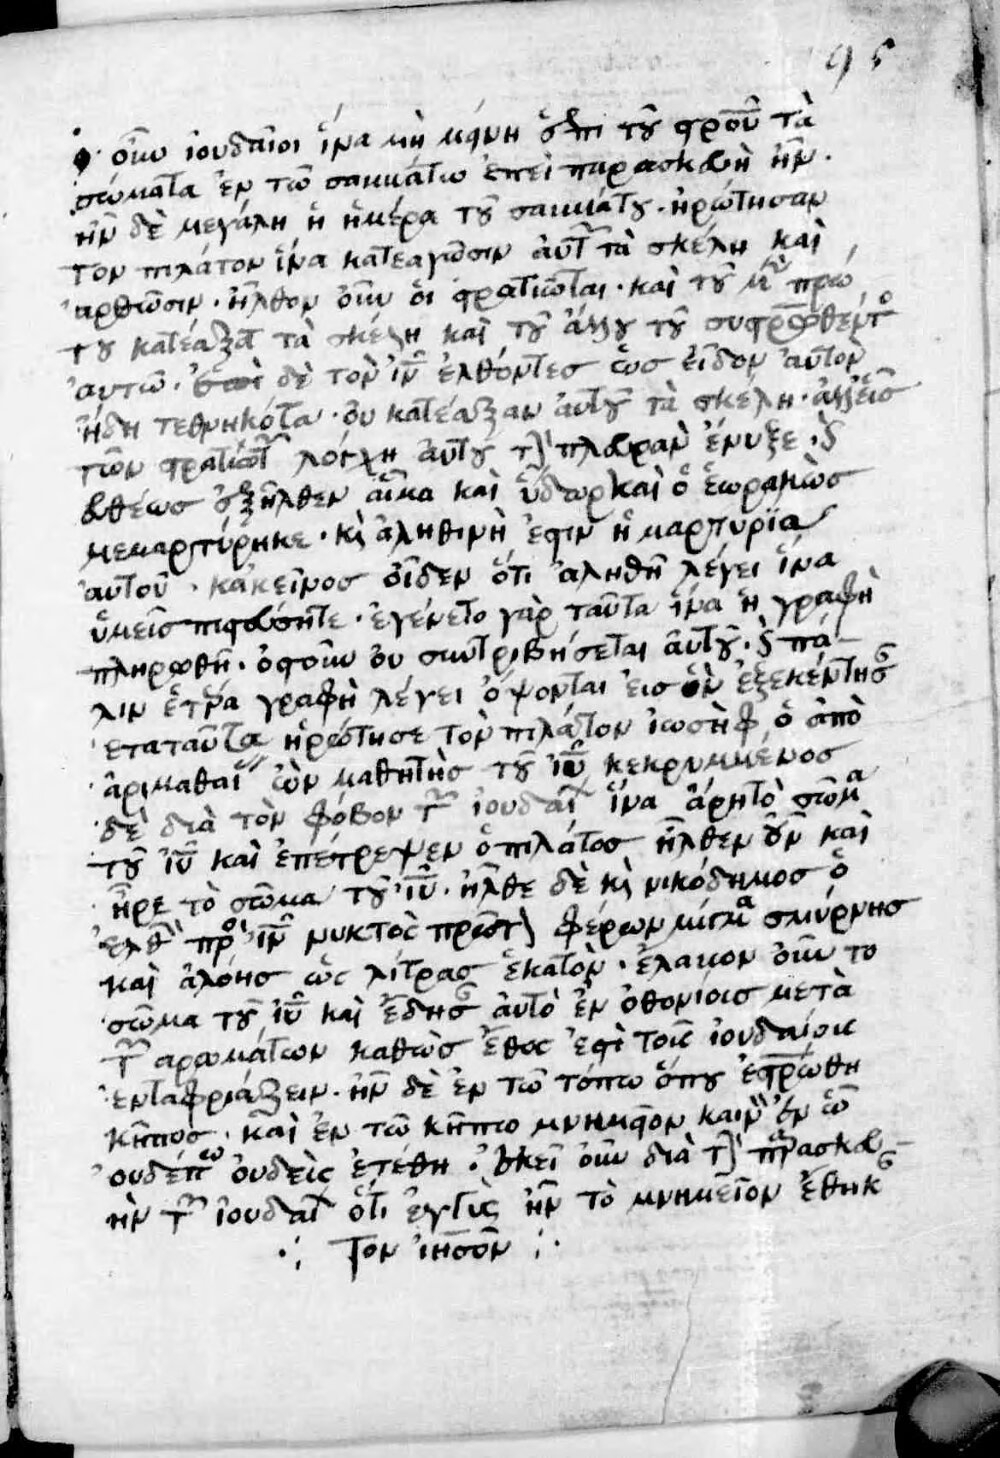 95
οἱ οὖν ἰουδαῖοι ἵνα μὴ μείνη ἐπὶ τοῦ σταυροῦ τὰ
σώματα ἐν τῶ σαββάτω ἐπεὶ παρασκευὴ ἦν.
ἦν δὲ μεγάλη ἡ ἡμέρα τοῦ σαββάτου. ἠρώτησαν
τον πιλάτον ἵνα κατεαγῶσιν αὐτῶν τὰ σκέλη καὶ
ἀρθῶσιν. ἦλθον οὖν οἱ στρατιῶται. καὶ τοῦ μὲν πρώ
του κατέαξαν τὰ σκέλη καὶ τοῦ ἄλλου τοῦ συσταυρωθέντος
αυτῶ. ἐπὶ δὲ τὸν ἰν ἐλθόντες ὡς εἶδον αὐτὸν
ἤδη τεθνηκότα. ου κατέαξαν αὐτοῦ τὰ σκέλη. ἀλλ εἷς
τῶν στρατιωτῶν λόγχη αὐτοῦ τὴν πλευρὰν ἔνυξε. καὶ
ευθέως ἐξῆλθεν αἷμα καὶ ὕδωρ καὶ ὁ ἑωρακὼς
μεμαρτύρηκε. κὶ ἀληθινὴ ἐστιν ἡ μαρτυρία
αὐτοῦ. κἀκεῖνος οἶδεν ὅτι ἀληθῆ λέγει ἵνα
ὑμεῖς πιστεύσητε. ἐγένετο γὰρ ταῦτα ἵνα ἡ γραφὴ
πληρωθῆ. ὀστοῦν ου συντριβήσεται αὐτοῦ. καὶ πά
λιν ἑτέρα γραφὴ λέγει ὄψονται εἰς ὃν ἐξεκέντησαν
μετα ταῦτα ἠρώτησε τὸν πιλάτον ἰωσὴφ ὁ ἀπὸ
ἀριμαθαίας ὢν μαθητὴς τοῦ ἰυ κεκρυμμένος
δὲ διὰ τὸν φόβον τῶν ἰουδαίων ἵνα ἄρη τὸ σῶμα
τοῦ ἰυ καὶ ἐπέτρεψεν ὁ πιλάτος ἦλθεν οὖν καὶ
ἦρε τὸ σῶμα τοῦ ἰυ. ἦλθε δὲ κὶ νικόδημος ὁ
ἐλθὼν πρὸς ἰν νυκτὸς πρῶτον φέρων μίγμα σμύρνης
καὶ ἀλόης ὡς λίτρας ἑκατὸν. ἔλαβον οὖν το
σῶμα τοῦ ἰυ καὶ ἔδησαν αὐτὸ ἐν ὀθονίοις μετὰ
τῶν αρωμάτων καθὼς ἔθος ἐστὶ τοῖς ἰουδαίοις
ἐνταφιάζειν. ἦν δὲ ἐν τῶ τόπω ὅπου ἐσταυρώθη
κῆπος. καὶ ἐν τῶ κήπω μνημεῖον καινὸν ἐν ὧ
ουδέπω ουδεὶς ἐτέθη. ἐκεῖ οὖν διὰ τὴν παρασκευ
ὴν τῶν ἰουδαίων ὅτι ἐγγὺς ἦν τὸ μνημεῖον ἔθηκαν
τον ἰησοῦν